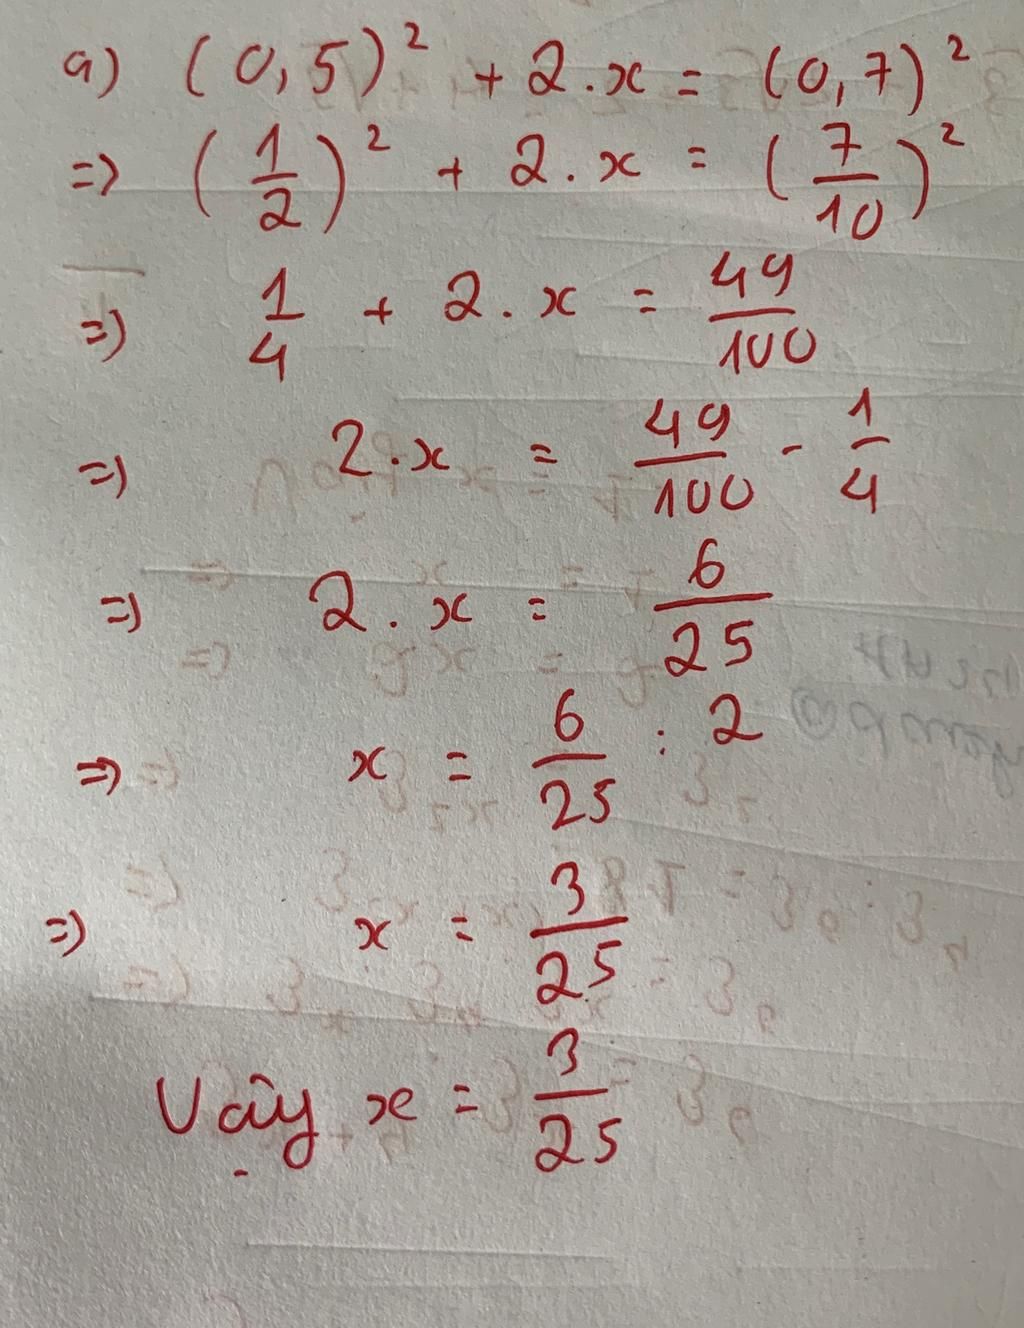 a) (0,5)² + 2.x = (0,7)²
=> (1/2)² + 2.x = (7/10)²
=> 1/4 + 2.x = 49/100
=> 2.x = 49/100 - 1/4
=> 2.x = 6/25
=> x = 6/25 : 2
=> x = 3/25
Vậy x = 3/25